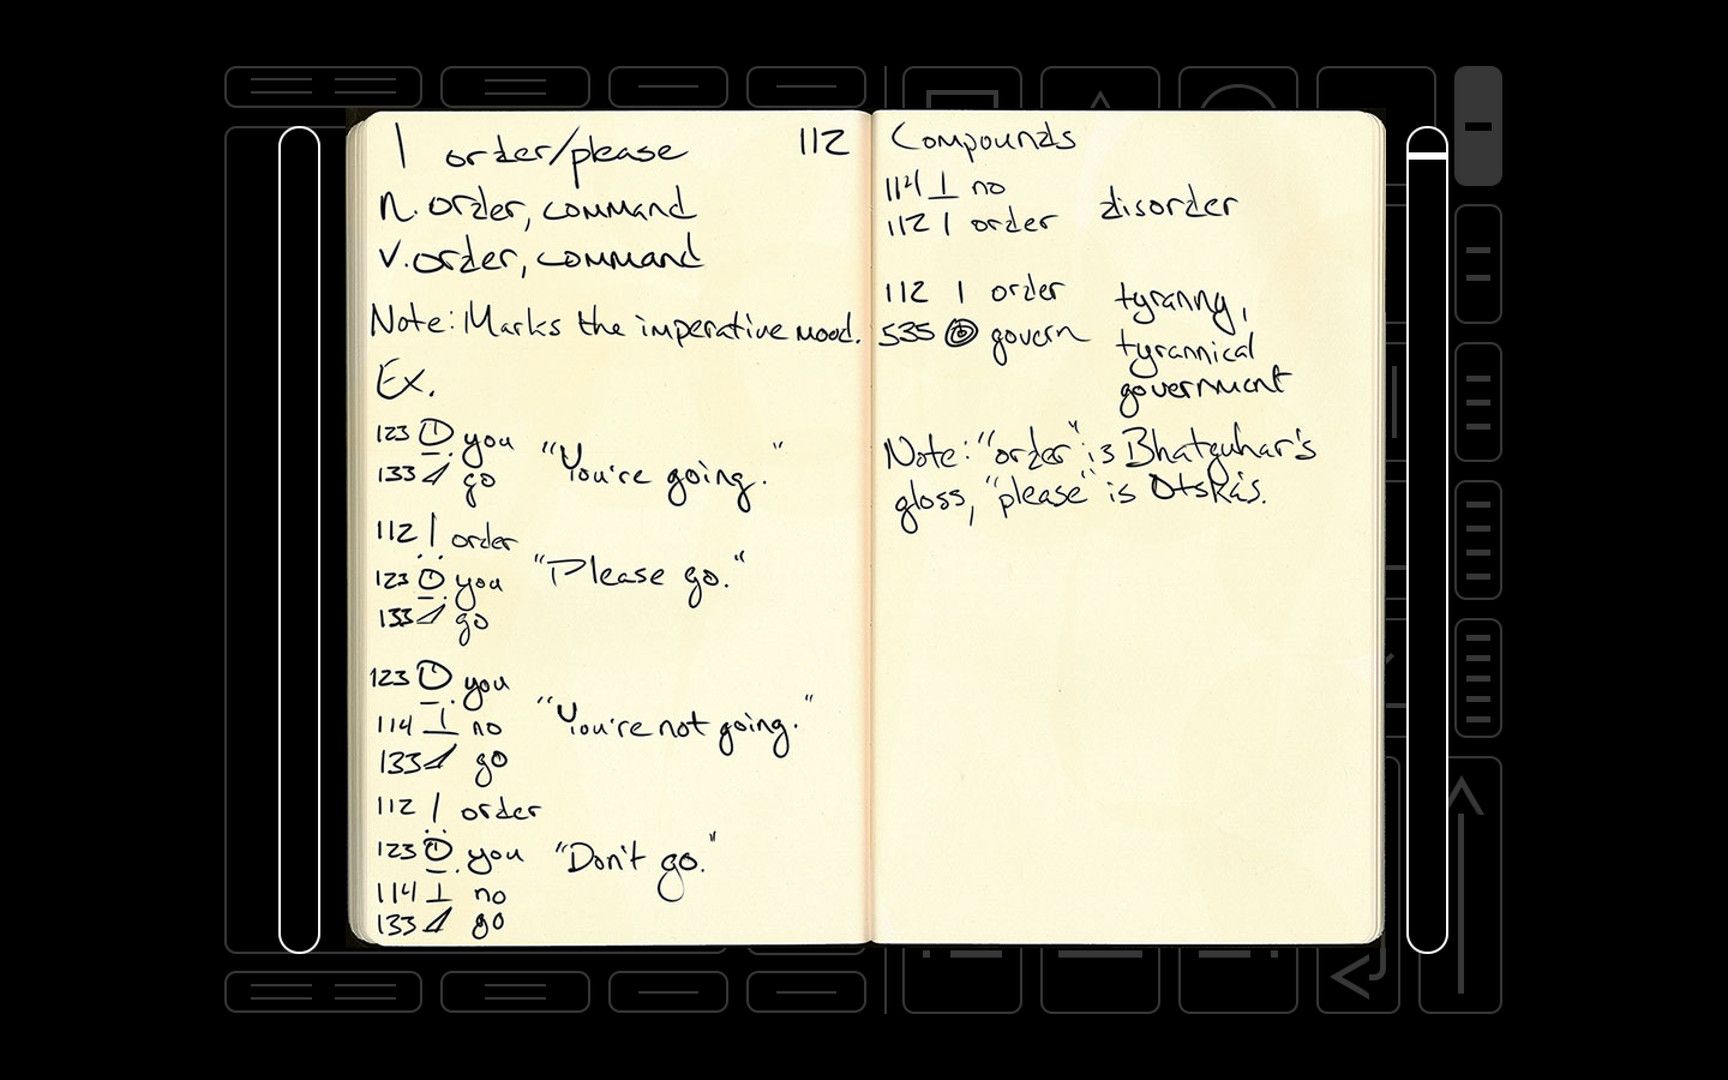 | order/please 112
n. order, command
v. order, command
Note: Marks the imperative mood.
Ex.
123 you
133 go
"You're going."
112 | order
123 you
133 go
"Please go."
123 you
114 ⊥ no
133 go
"You're not going."
112 | order
123 you
114 ⊥ no
133 go
"Don't go."
Compounds
114 ⊥ no
112 | order
disorder
112 | order
535 govern
tyranny,
tyrannical
government
Note: "order" is Bhatguhar's
gloss, "please" is Otská's.